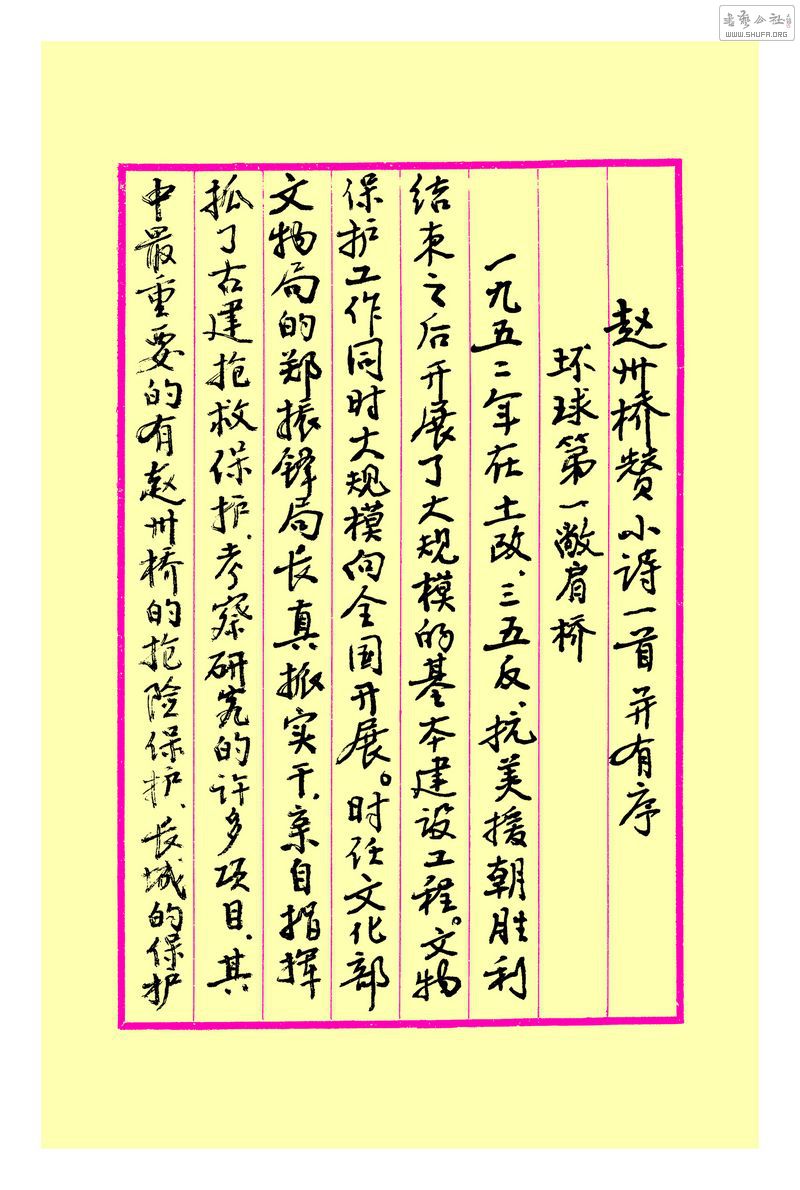 赵州桥赞小诗一首并有序
环球第一敞肩桥
一九五二年在土改、三五反、抗美援朝胜利
结束之后开展了大规模的基本建设工程。文物
保护工作同时大规模向全国开展。时任文化部
文物局的郑振铎局长真抓实干,亲自指挥
抓了古建抢救保护、考察研究的许多项目,其
中最重要的有赵州桥的抢险保护、长城的保护
書藝公社
WWW.SHUFA.ORG